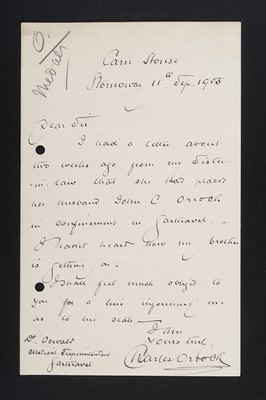 O.
Medals
Carn House
Stornoway 11th Sep. 1903
Dear Sir
I had a letter about
two weeks ago from my Sister
-in-law that she had placed
her husband John C. Orrock
in confinement in
Gartnavel.
I havent heard how my brother
is getting on.
I shall feel much obliged to
you for a line informing me
as to his state
I am
Yours truly
Charles Orrock
Dr. Oswald
Medical Superintendent
Gartnavel